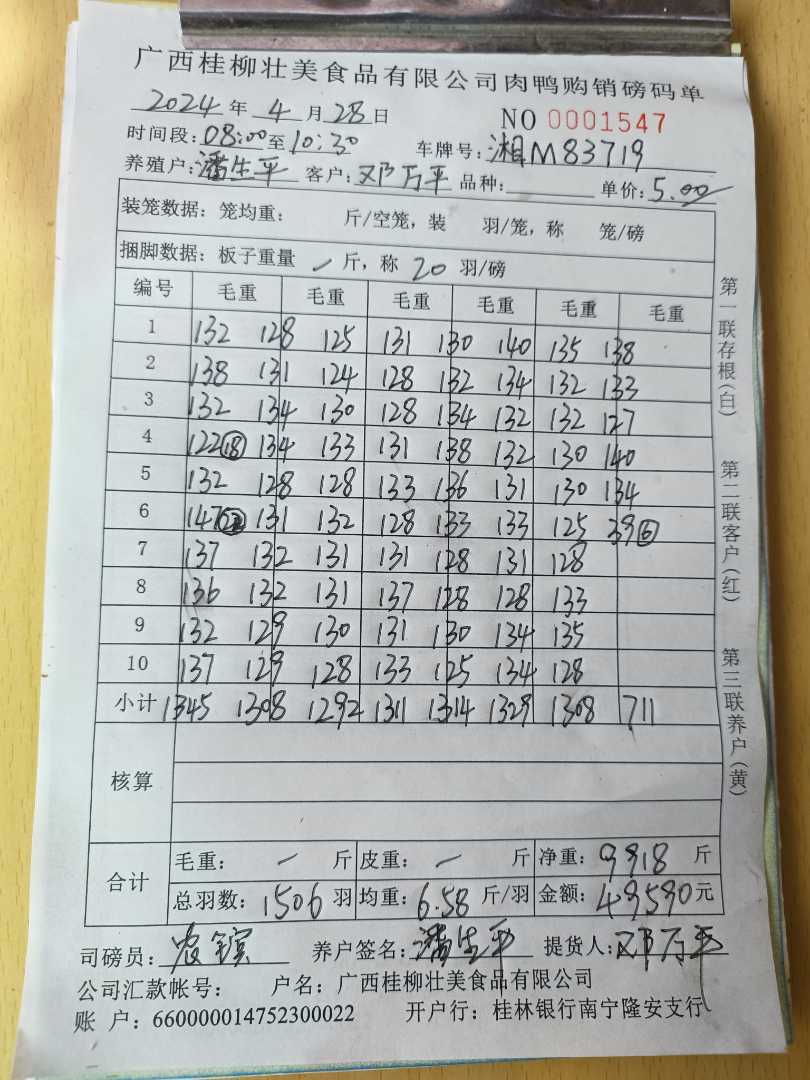 广西桂柳壮美食品有限公司肉鸭购销磅码单
2024年4月28日 NO 0001547
时间段:08:00至10:30 车牌号:湘M83719
养殖户:潘生平 客户:邓万平 品种: 单价:5.00
装笼数据:笼均重: 斤/空笼,装 羽/笼,称 笼/磅
捆脚数据:板子重量 一 斤,称 20 羽/磅
编号 毛重 毛重 毛重 毛重 毛重 毛重
1 132 128 125 131 130 140 135 138
2 138 131 124 128 132 134 132 133
3 132 134 130 128 134 132 132 127
4 122⑱ 134 133 131 138 132 130 140
5 132 128 128 133 136 131 130 134
6 147㉒ 131 132 128 133 133 125 39⑥
7 137 132 131 131 128 131 128
8 136 132 131 137 128 128 133
9 132 129 130 131 130 134 135
10 137 129 128 133 125 134 128
小计 1345 1308 1292 1311 1314 1329 1308 711
核算
合计
毛重: 一 斤 皮重: 一 斤 净重: 9918 斤
总羽数:1506 羽 均重:6.58 斤/羽 金额:49590元
司磅员: 养户签名:潘生平 提货人:邓万平
公司汇款帐号: 户名:广西桂柳壮美食品有限公司
账 户:660000014752300022 开户行:桂林银行南宁隆安支行
第一联存根(白)
第二联客户(红)
第三联养户(黄)